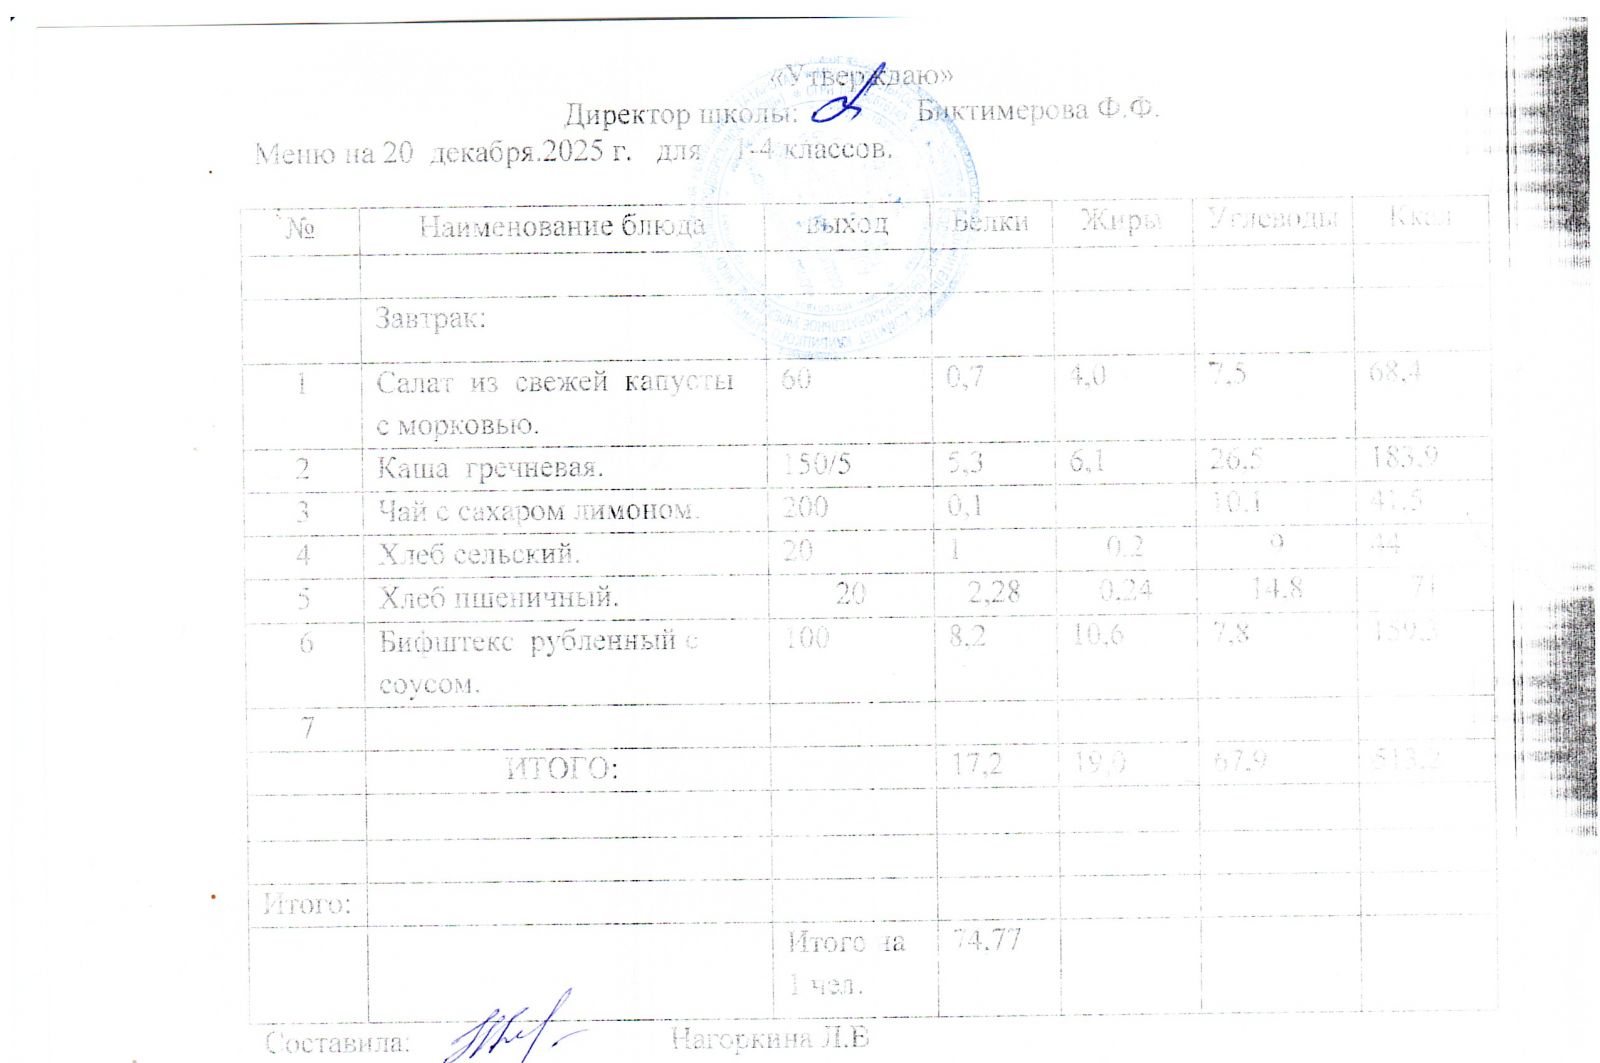 «Утверждаю»
Директор школы: Биктимерова Ф.Ф.
Меню на 20 декабря.2025 г. для 1-4 классов.
№ Наименование блюда выход Белки Жиры Углеводы Ккал
Завтрак:
1 Салат из свежей капусты 60 0,7 4,0 7,5 68,4
с морковью.
2 Каша гречневая. 150/5 5,3 6,1 26.5 183.9
3 Чай с сахаром лимоном. 200 0,1 10.1 41.5
4 Хлеб сельский. 20 1 0.2 9 44
5 Хлеб пшеничный. 20 2,28 0.24 14.8 71
6 Бифштекс рубленный с 100 8,2 10,6 7,8
соусом.
7
ИТОГО: 17,2 19,0 67.9
Итого:
Итого на 74,77
1 чел.
Составила: Нагоркина Л.В